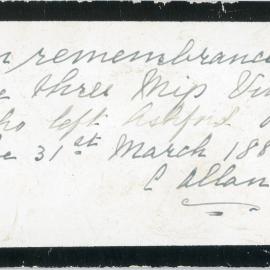 n remembranc
e three Miss Vi
ho left Ashford o
e 31st March 188
C Allan